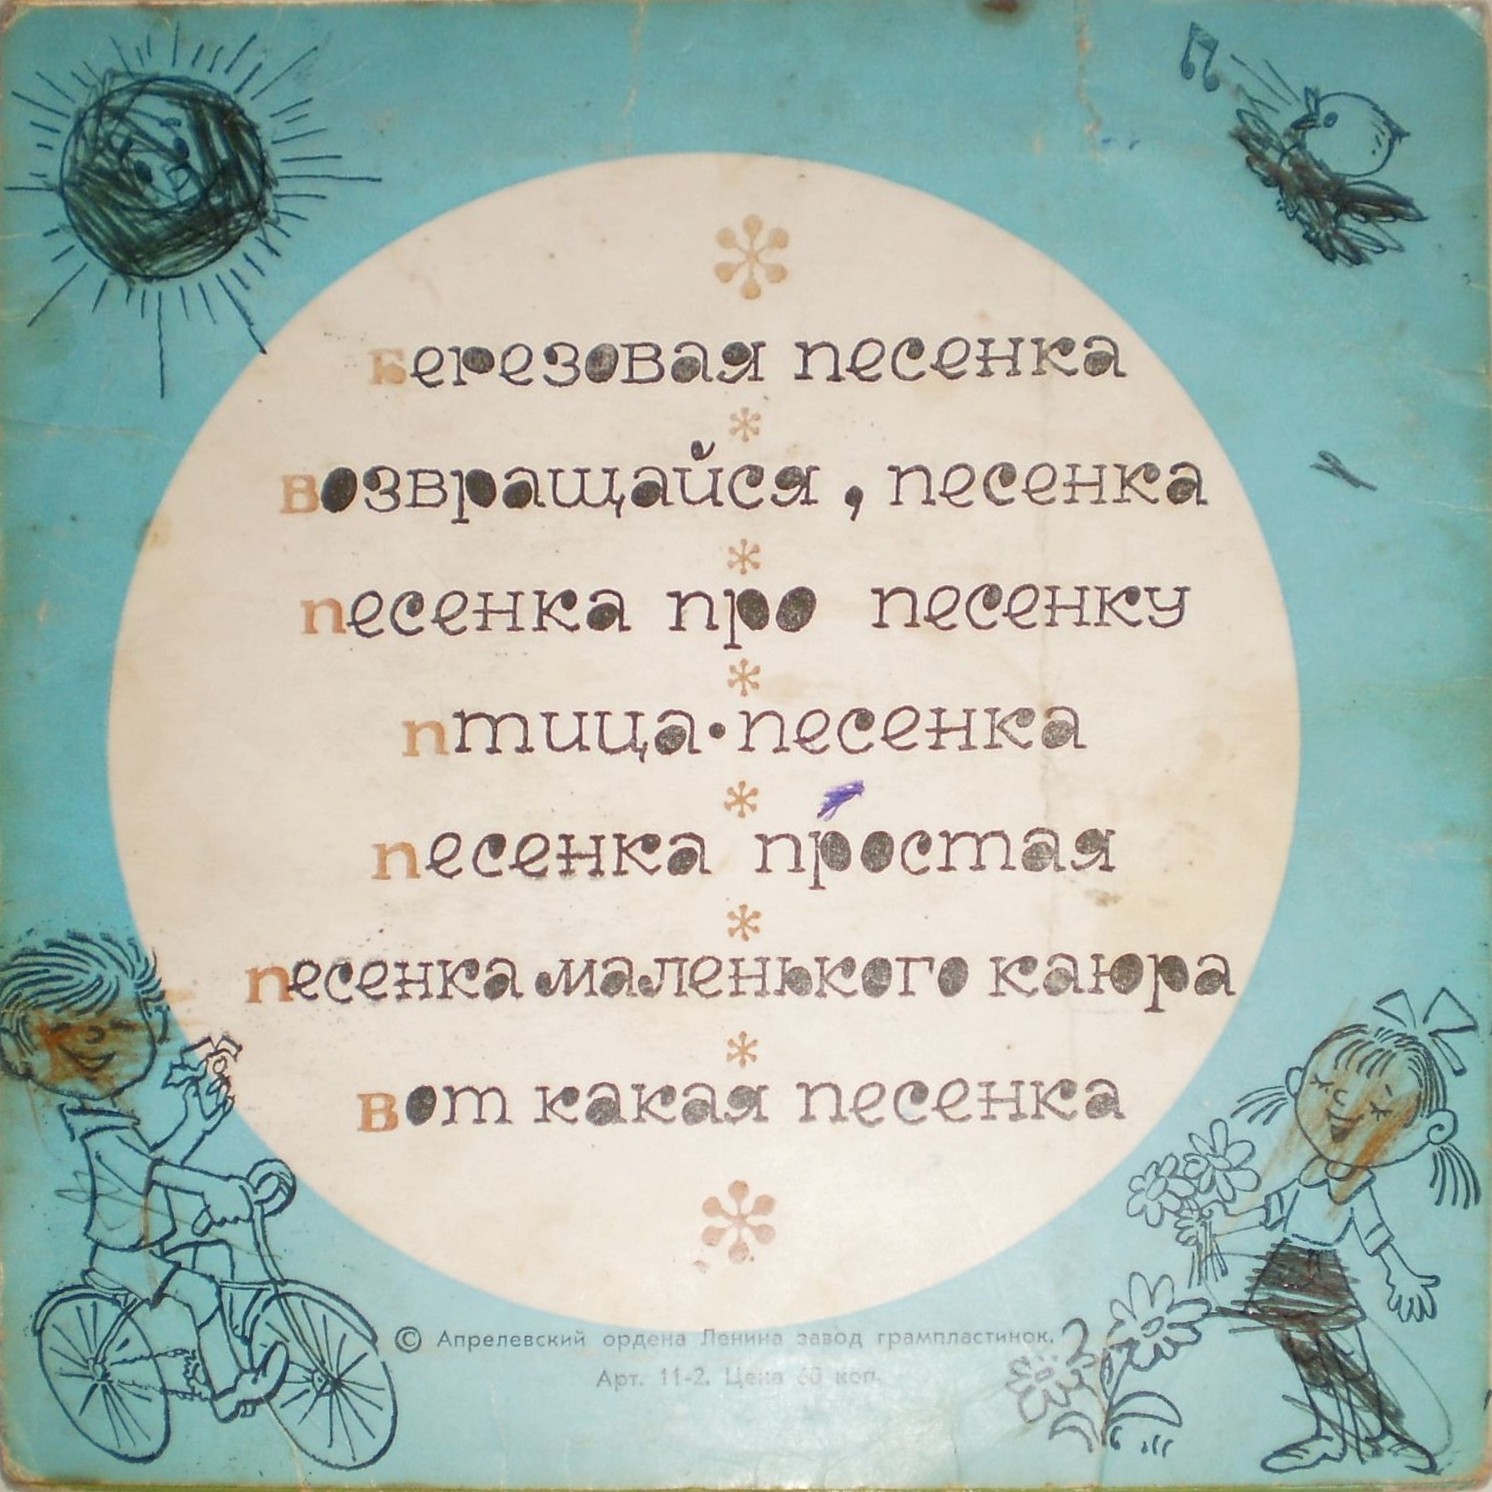 Березовая песенка
Возвращайся, песенка
Песенка про песенку
Птица-песенка
Песенка простая
Песенка маленького каюра
Вот какая песенка
© Апрелевский ордена Ленина завод грампластинок.
Арт. 11-2. Цена 60 коп.